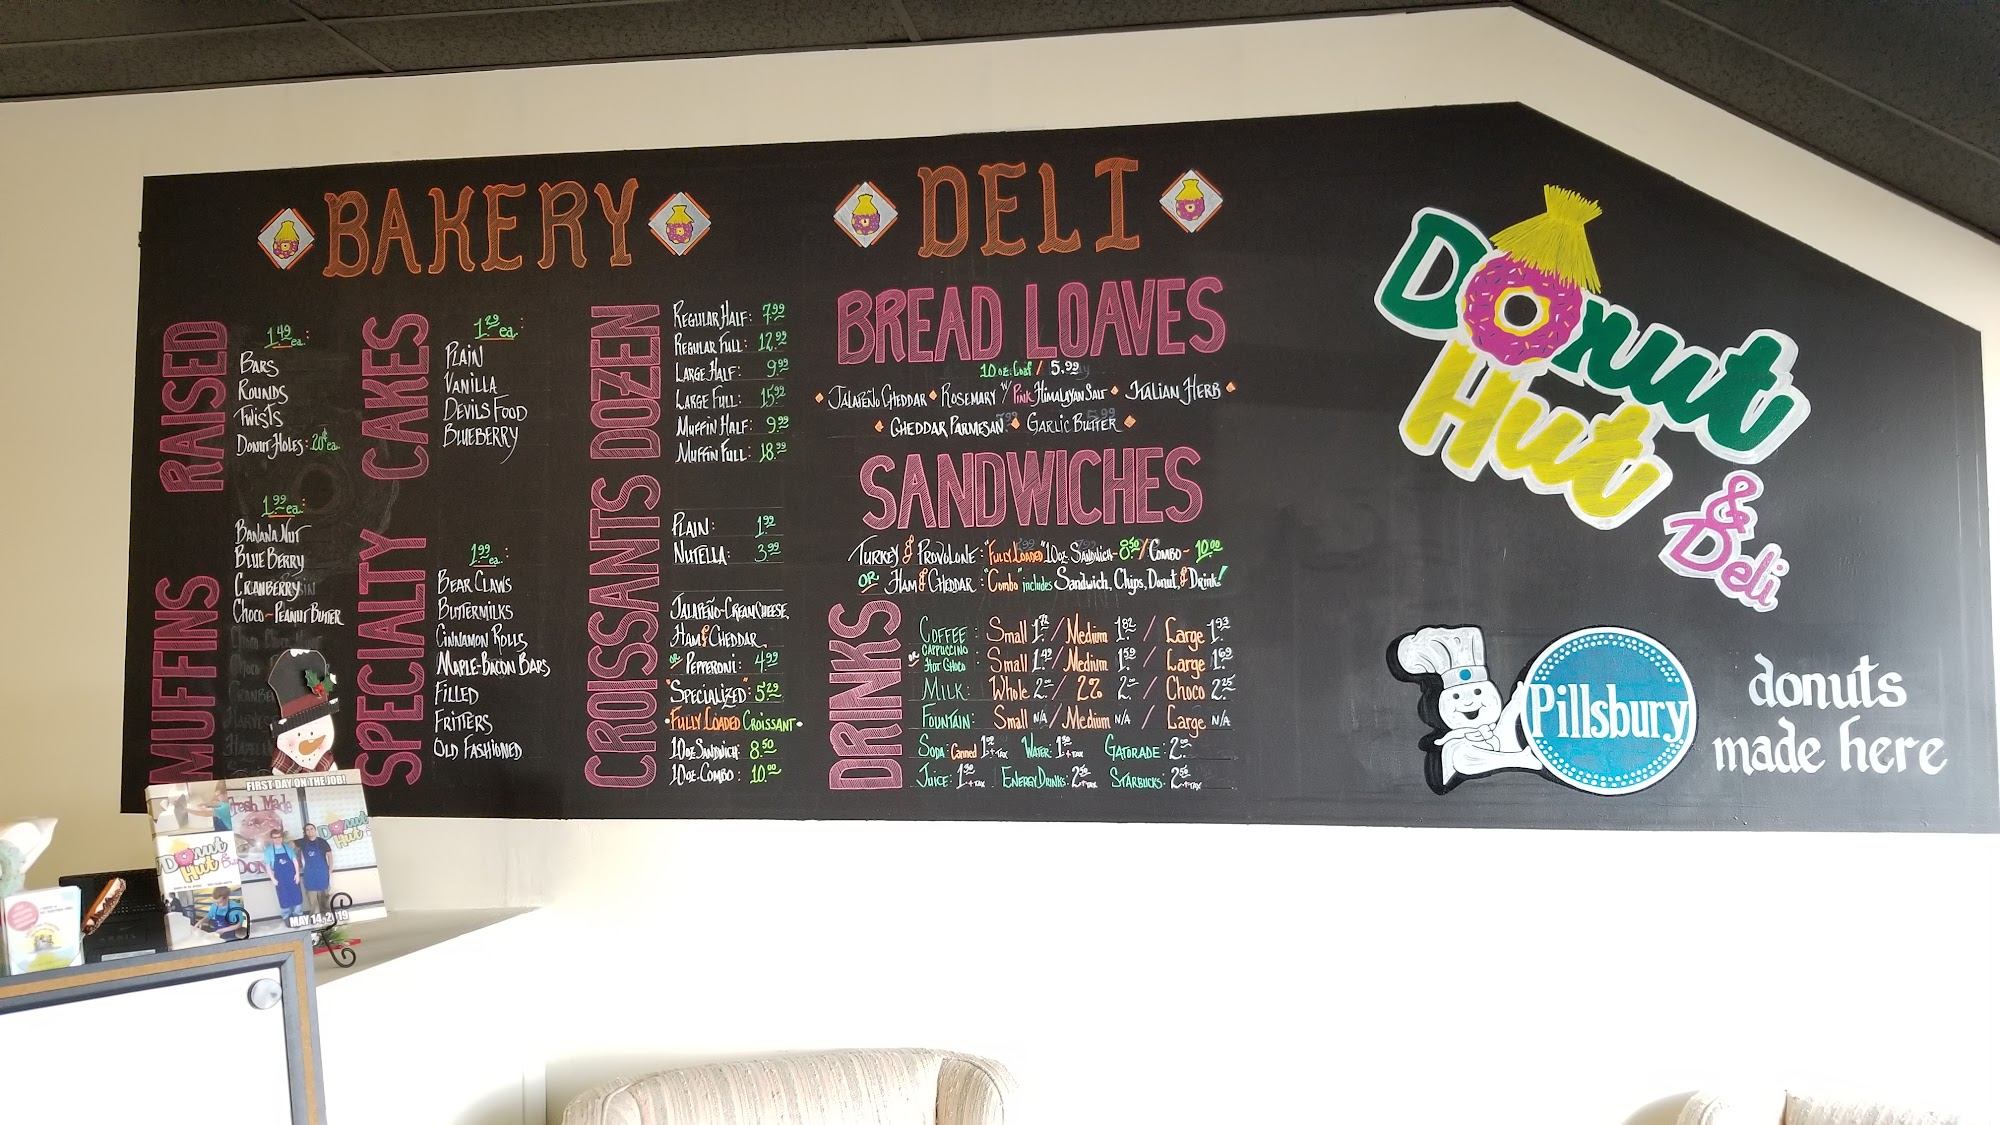 BAKERY
RAISED
1.49 ea:
BARS
ROUNDS
TWISTS
DONUT HOLES: .20¢ ea.
MUFFINS
1.99 ea:
BANANA NUT
BLUE BERRY
CRANBERRY
CHOCO-PEANUT BUTTER
CAKES
1.29 ea:
PLAIN
VANILLA
DEVILS FOOD
BLUEBERRY
SPECIALTY
1.99 ea:
BEAR CLAWS
BUTTERMILKS
CINNAMON ROLLS
MAPLE-BACON BARS
FILLED
FRITTERS
OLD FASHIONED
DOZEN
REGULAR HALF: 7.99
REGULAR FULL: 12.99
LARGE HALF: 9.99
LARGE FULL: 15.99
MUFFIN HALF: 9.99
MUFFIN FULL: 18.99
CROISSANTS
PLAIN: 1.92
NUTELLA: 3.99
JALAPEÑO-CREAM CHEESE,
HAM & CHEDDAR,
OR PEPPERONI: 4.99
"SPECIALIZED": 5.29
•FULLY LOADED CROISSANT•
10oz. SANDWICH: 8.50
10oz. COMBO: 10.00
DELI
BREAD LOAVES
10 oz. Loaf / 5.99
JALAPEÑO CHEDDAR • ROSEMARY W/ PINK HIMALAYAN SALT • ITALIAN HERB
CHEDDAR PARMESAN • GARLIC BUTTER
SANDWICHES
TURKEY & PROVOLONE: "FULLY LOADED" 10oz. SANDWICH- 8.50 / COMBO- 10.00
OR HAM & CHEDDAR: "Combo" includes Sandwich, Chips, Donut, & Drink!
DRINKS
COFFEE: Small / Medium 1.82 / Large 1.93
OR CAPPUCCINO
HOT CHOCO: Small 1.49 / Medium 1.59 / Large 1.69
MILK: Whole / 2% / Choco 2.25
FOUNTAIN: Small N/A / Medium N/A / Large N/A
SODA: Canned +TAX WATER: +TAX GATORADE:
JUICE: +TAX ENERGY DRINKS: +TAX STARBUCKS: +TAX
Donut
Hut
&
Deli
Pillsbury
donuts
made here
FIRST DAY ON THE JOB!
Fresh Made
Donut
Hut
Donut
Hut
MAY 14, 2019